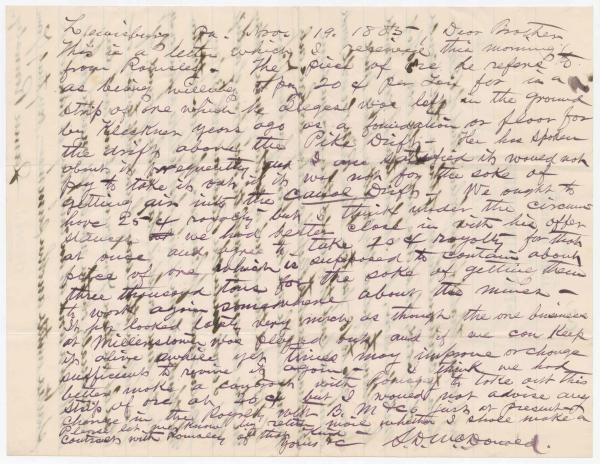 Lewisburg Pa. Nov 19. 1885, Dear Brother
This is a letter which I received this morning
from Rowsey - The piece of ore he refers to
as being willing to pay 20 ¢ per ton for is a
strip of ore which he alleges was left in the ground
by years ago as a foundation or floor for
the drift above the Pike Drift - He has spoken
about it frequently and I am satisfied it would not
pay to take it out if it was not for the sake of
getting air into the Drift - We ought to
have 25 ¢ royalty but I think under the circum-
stances we had better close in with his offer
at once and agree to take 20 ¢ royalty for that
piece of ore which is supposed to contain about
three thousand tons for the sake of getting them
to work again somewhere about the mines -
It looked lately very much as though the ore business
at Millerstown was played out and if we can keep
it alive awhile yet times may improve or change
sufficient to revive it again - I think we had
better make a contract with Rowsey to take out this
strip of ore at 20 ¢ but I would not advise any
change in the Royalty with B. M & Co just at present
Please let me know by return mail whether I shall make a
contract with Rowsey of that kind -
Yours &c S.D. McDonald.